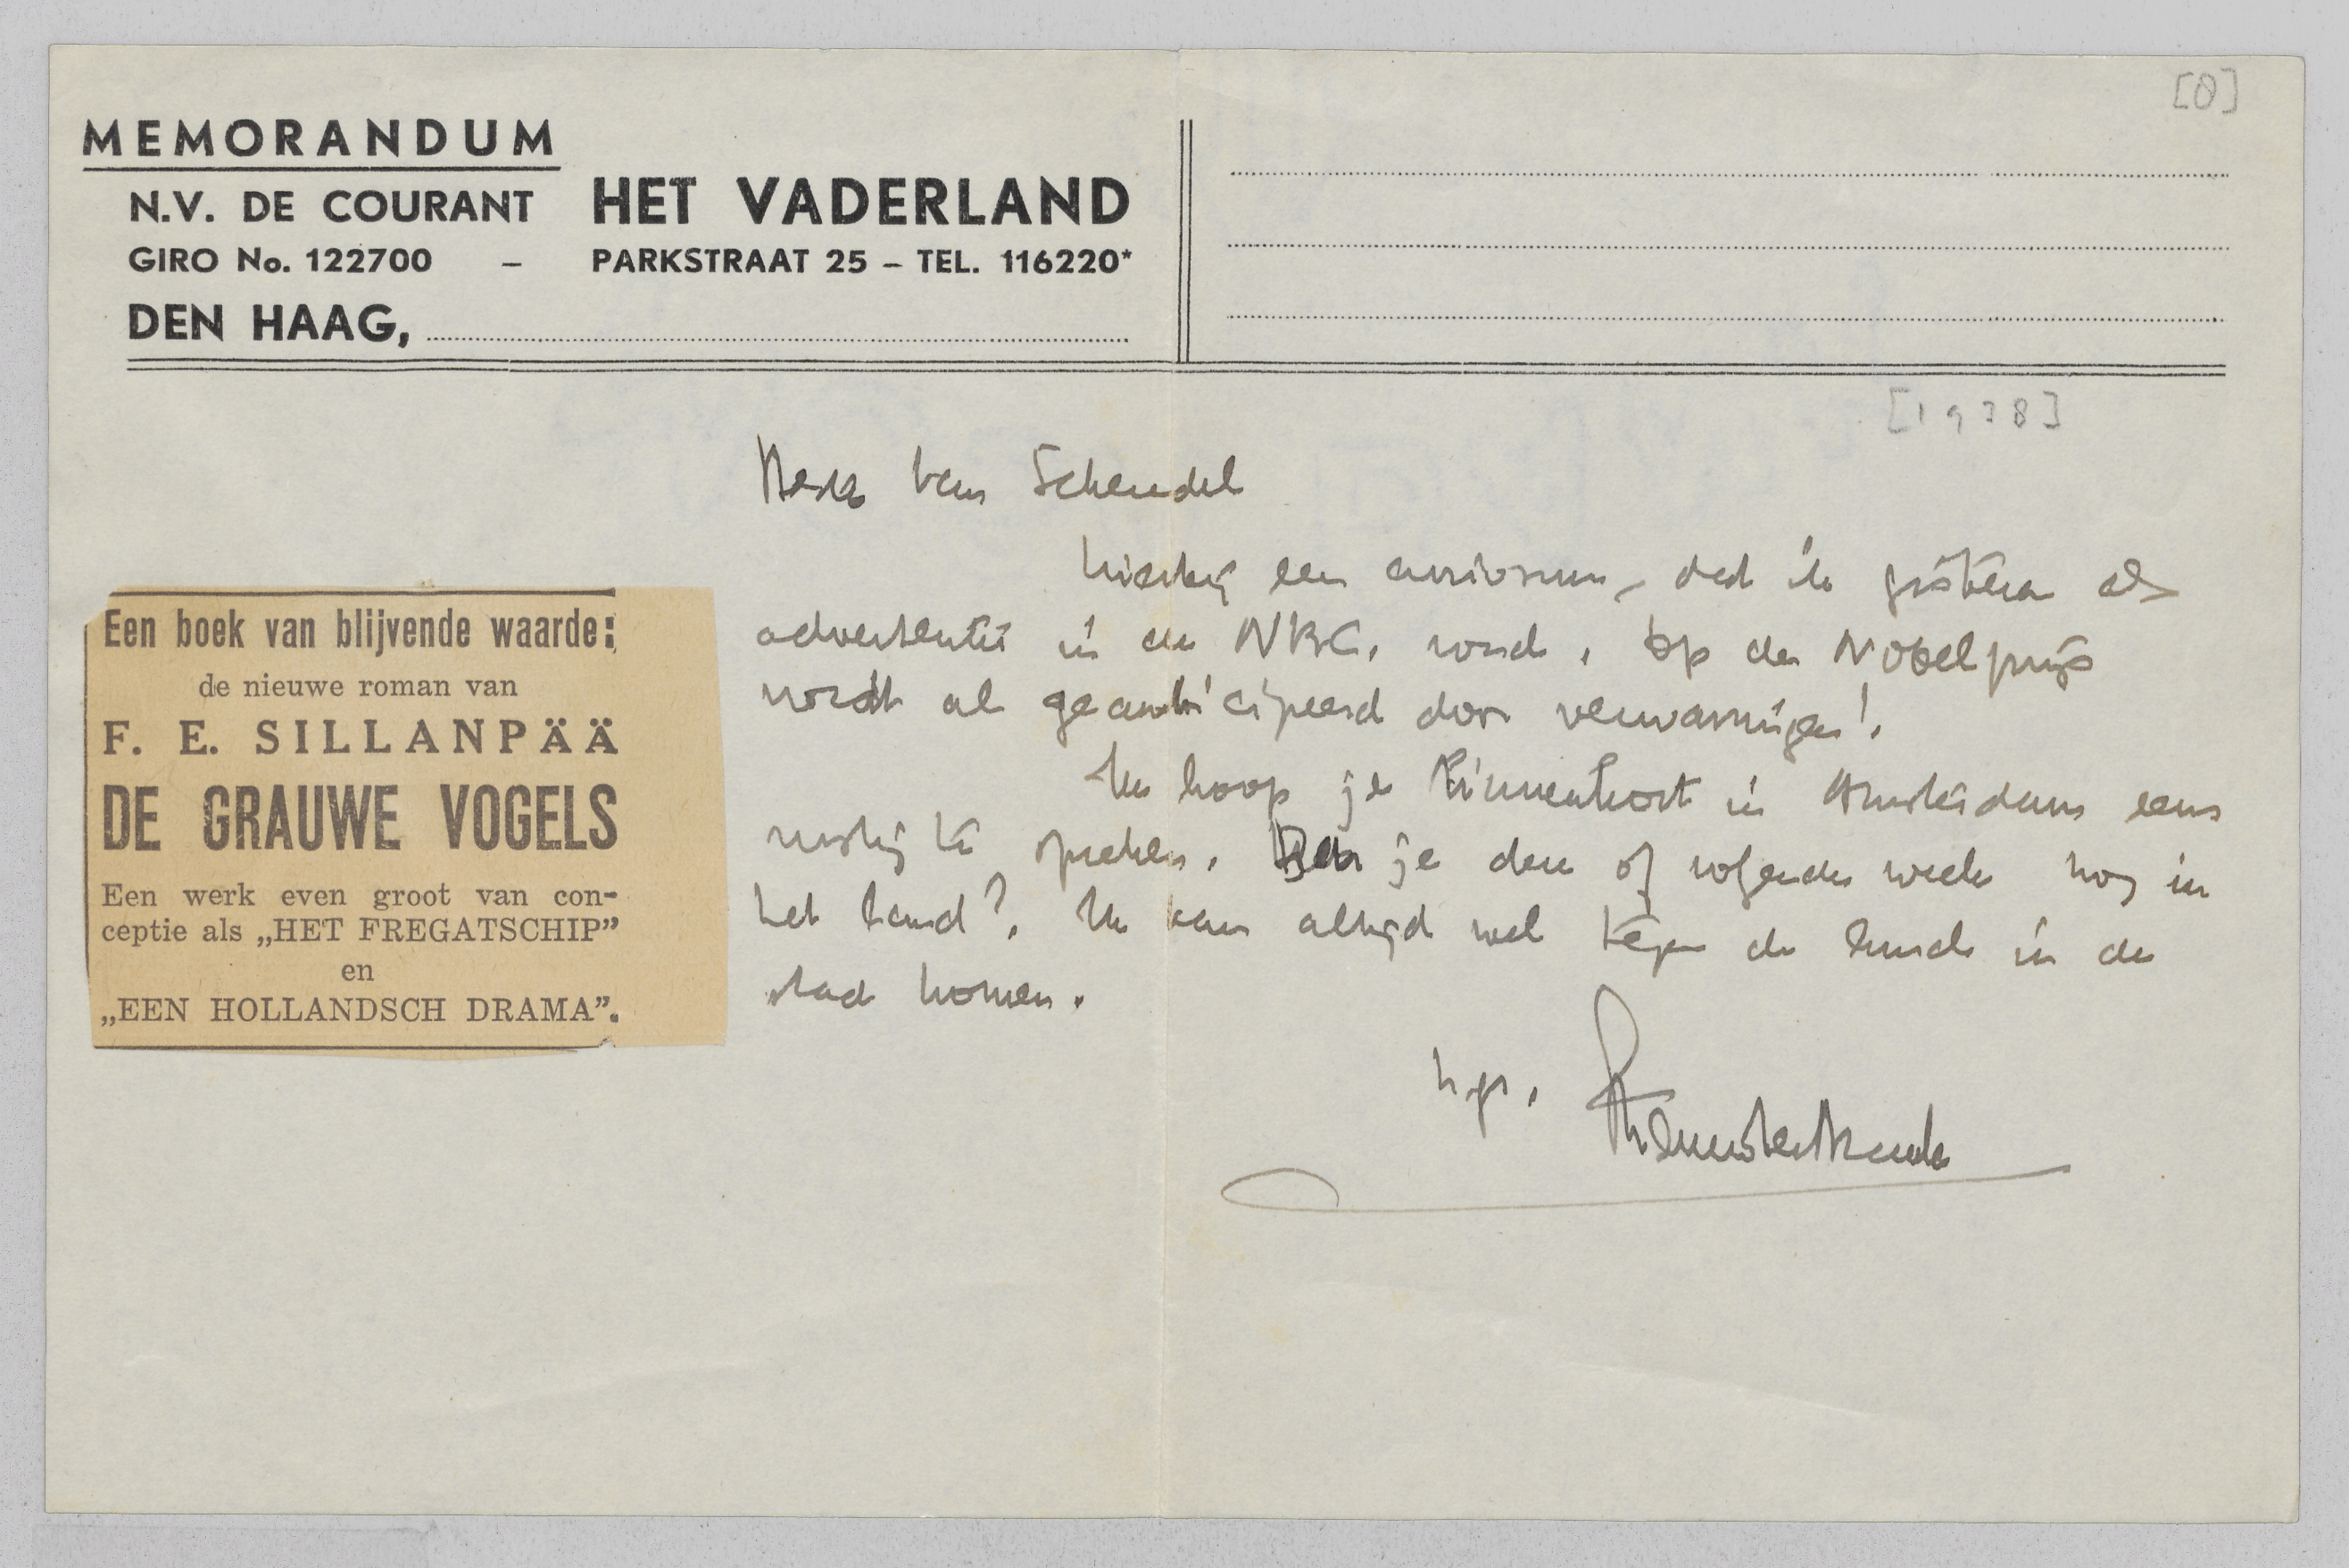 [0]
MEMORANDUM
N.V. DE COURANT HET VADERLAND
GIRO No. 122700 – PARKSTRAAT 25 – TEL. 116220*
DEN HAAG,
[1938]
Beste van Schendel
hierbij een curiosum, dat ik gisteren als
advertentie in de NRC. vond. Op de Nobelprijs
wordt al geanticipeerd door verwarringen!
Ik hoop je binnenkort in Amsterdam eens
rustig te spreken. Ben je deze of volgende week nog in
het land? Ik kan altijd wel tegen de lunch in de
stad komen.
h.gr.
Een boek van blijvende waarde:
de nieuwe roman van
F. E. SILLANPÄÄ
DE GRAUWE VOGELS
Een werk even groot van con-
ceptie als „HET FREGATSCHIP”
en
„EEN HOLLANDSCH DRAMA”.